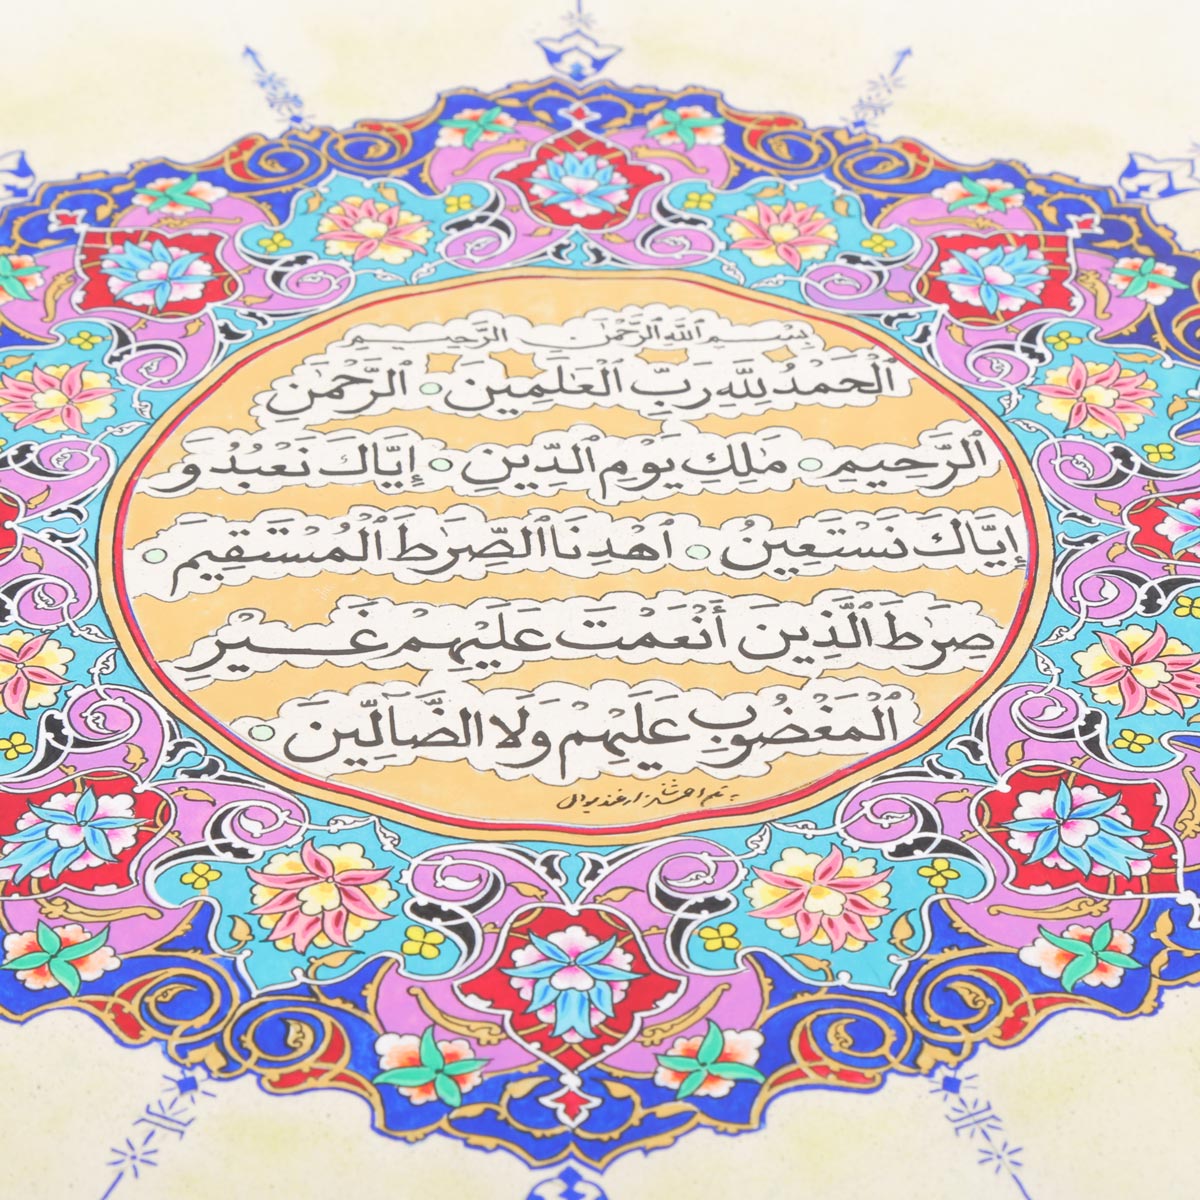 بِسْمِ ٱللَّهِ ٱلرَّحْمَٰنِ ٱلرَّحِيمِ
ٱلْحَمْدُ لِلَّهِ رَبِّ ٱلْعَٰلَمِينَ ٱلرَّحْمَٰنِ
ٱلرَّحِيمِ مَٰلِكِ يَوْمِ ٱلدِّينِ إِيَّاكَ نَعْبُدُ وَ
إِيَّاكَ نَسْتَعِينُ ٱهْدِنَا ٱلصِّرَٰطَ ٱلْمُسْتَقِيمَ
صِرَٰطَ ٱلَّذِينَ أَنْعَمْتَ عَلَيْهِمْ غَيْرِ
ٱلْمَغْضُوبِ عَلَيْهِمْ وَلَا ٱلضَّآلِّينَ